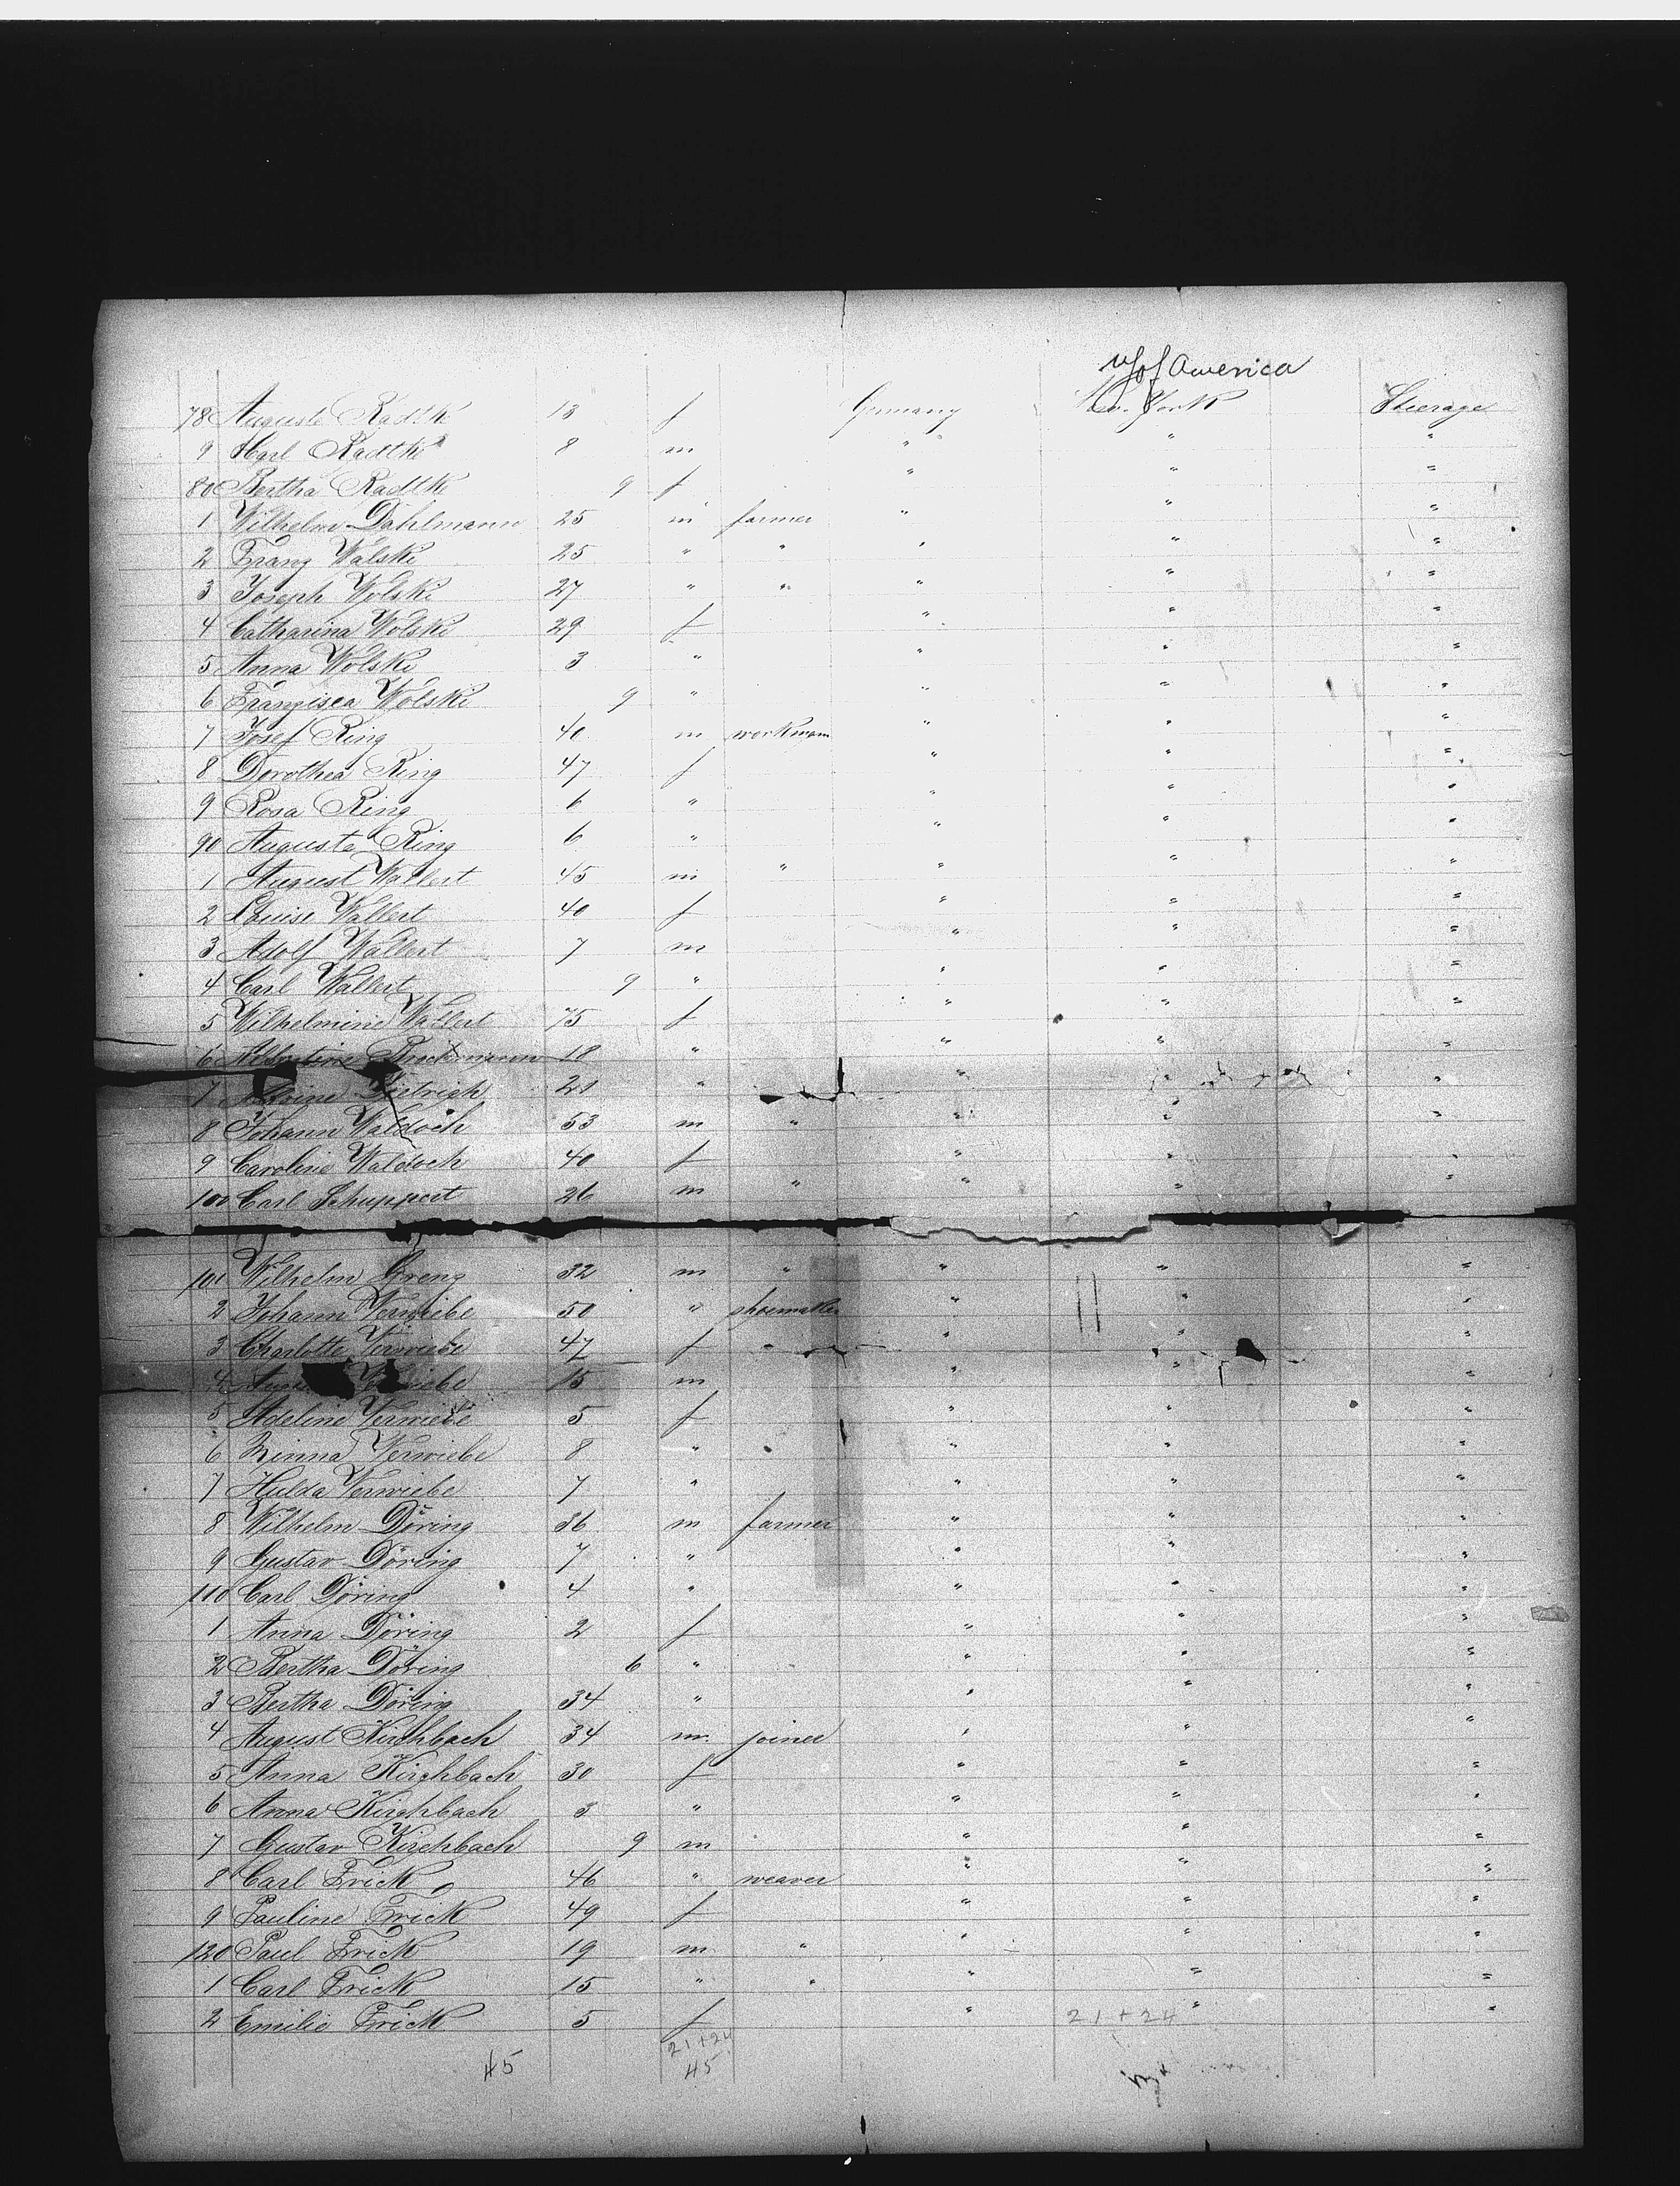 US of America
78 Auguste Radtke 13 f Germany New York Steerage
9 Carl Radtke 8 m " " "
80 Bertha Radtke 9 f " " "
1 Wilhelm Dahlmann 25 m farmer " " "
2 Franz Wolski 25 " " " " "
3 Joseph Wolski 27 " " " " "
4 Catharina Wolski 29 f " " "
5 Anna Wolski 3 " " " "
6 Franzisca Wolski 9 " " " "
7 Josef Ring 40 m workmam " " "
8 Dorothea Ring 47 f " " "
9 Rosa Ring 6 " " " "
90 Auguste Ring 6 " " " "
1 August Wallert 45 m " " " "
2 Louise Wallert 40 f " " "
3 Adolf Wallert 7 m " " "
4 Carl Wallert 9 " " " "
5 Wilhelmine Wallert 75 f " " "
6 Albertine 18 " " " "
7 Dietrich 21 " " " "
8 Johann Waldoch 53 m " " " "
9 Caroline Waldoch 40 f " " "
100 Carl Schuppert 26 m " " " "
101 Wilhelm Greng 32 m " " " "
2 Johann Verwiebe 50 " shoemaker " " "
3 Charlotte Verwiebe 47 f " " "
4 Verwiebe 15 m " " "
5 Adeline Verwiebe 5 f " " "
6 Minna Verwiebe 8 " " " "
7 Hulda Verwiebe 7 " " " "
8 Wilhelm Döring 36 m farmer " " "
9 Gustav Döring 7 " " " "
110 Carl Döring 4 " " " "
1 Anna Döring 2 f " " "
2 Bertha Döring 6 " " " "
3 Bertha Döring 34 " " " "
4 August Kirchbach 34 m joiner " " "
5 Anna Kirchbach 30 f " " "
6 Anna Kirchbach 3 " " " "
7 Gustav Kirchbach 9 m " " "
8 Carl Frick 46 " weaver " " "
9 Pauline Frick 49 f " " "
120 Paul Frick 19 m " " " "
1 Carl Frick 15 " " " " "
2 Emilie Frick 5 f " " "
21+24 21+24
45 45